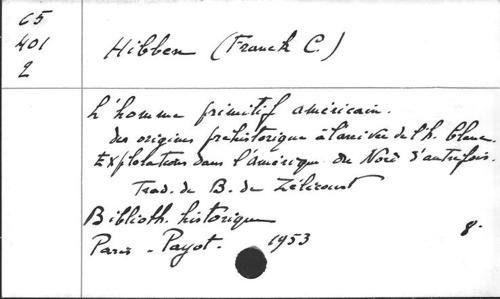 65
401
2
Hibben (Franck C.)
L'homme primitif américain.
des origines préhistorique à l'arrivée de l'h. blanc.
Explorations dans l'Amérique du Nord d'autrefois.
Trad. de B. de Zélicourt
Biblioth. historique
Paris - Payot. 1953 8°